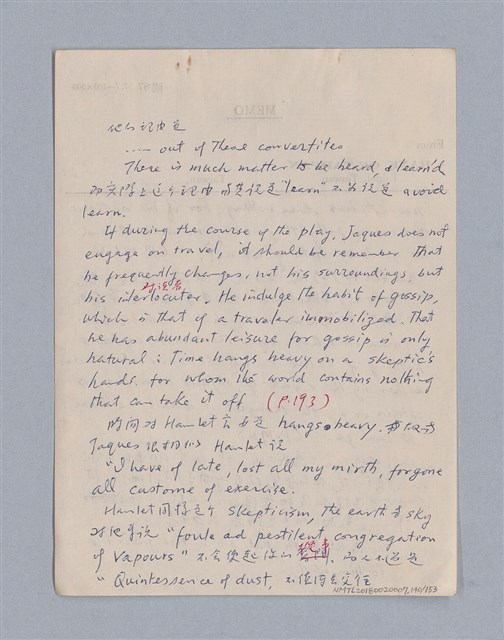 MEMO
他的理由是
—— out of These convertites
There is much matter to be heard, & learn'd
learn.
If during the course of the play, Jaques does not
engage on travel, it should be remember that
he frequently changes, not his surroundings but
對說者
his interlocuter. He indulge the habit of gossip,
which is that of a traveler immobilized. That
he has abundant leisure for gossip is only
natural: Time hangs heavy on a skeptic's
hands. for whom the world contains nothing
that can take it off (P.193)
時間對 Hamlet 言也是 hangs heavy.
Jaques 很相似 Hamlet 說
"I have of late, lost all my mirth, forgone
all custome of exercise.
Hamlet 同樣是个 skepticism, the earth 與 sky
對他來說 "foule ad pestilent congregation
of vapours" 不會使起他的
"Quintessence of dust, 不值得去交往
NMTL20180020007,140/153